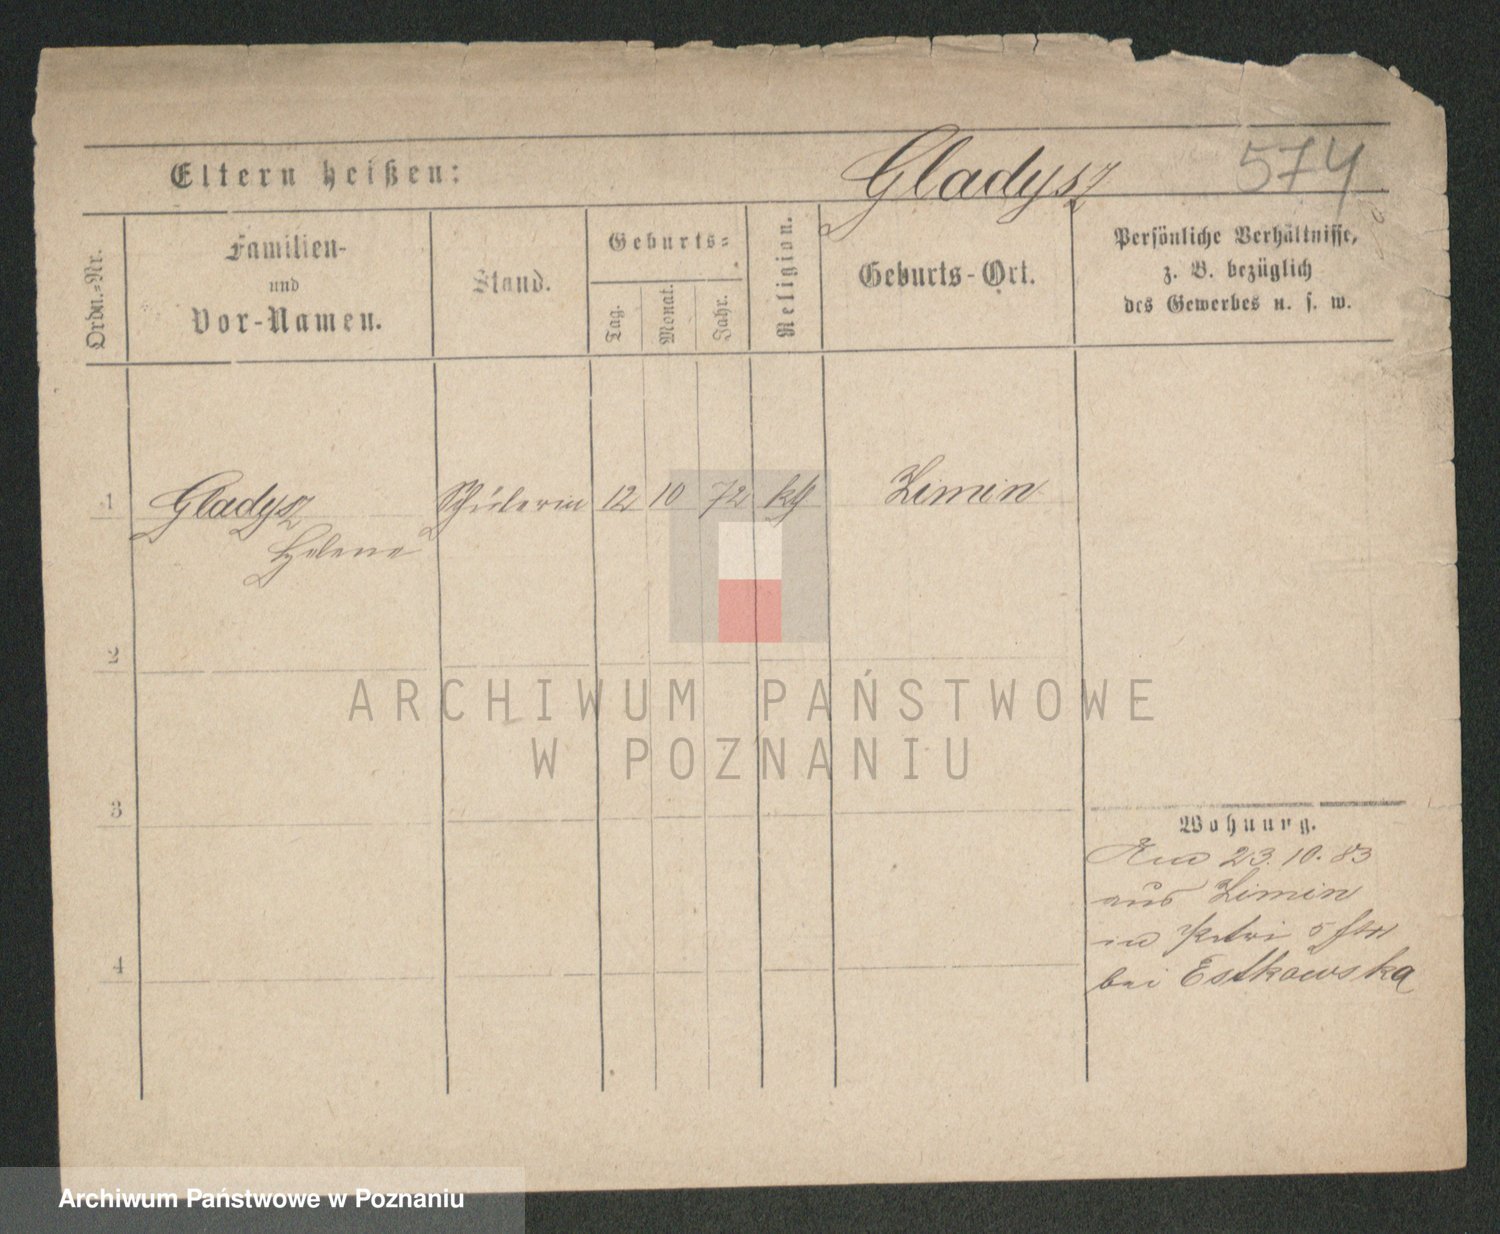 Gladysz 574
Eltern heißen:
Ordn.-Nr.
Familien-
und
Vor-Namen.
Stand.
Geburts-
Tag.
Monat.
Jahr.
Religion.
Geburts-Ort.
Persönliche Verhältnisse,
z. B. bezüglich
des Gewerbes u. s. w.
1 Gladysz Schülerin 12 10 72 kth Zimin
Helene
2
3
4
Wohnung.
23. 10. 83
aus Zimin
in Petri 5
bei Estkowska
ARCHIWUM PAŃSTWOWE
W POZNANIU
Archiwum Państwowe w Poznaniu